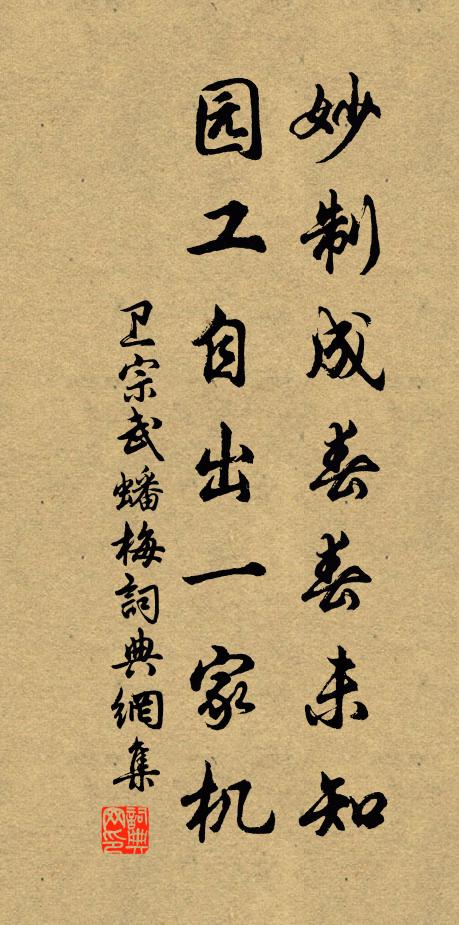 妙制成春春未知
园工自出一家机
卫宗武蟠梅詞典網集
詞典网印